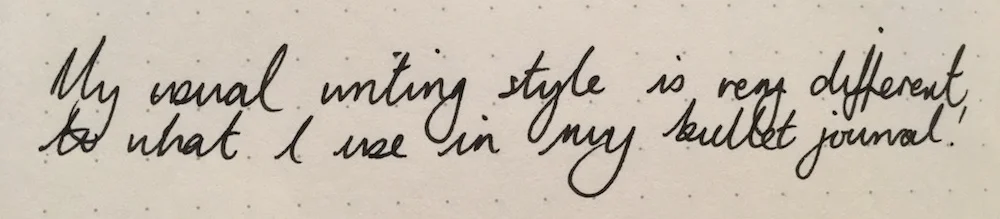 My usual writing style is very different
to what I use in my bullet journal!